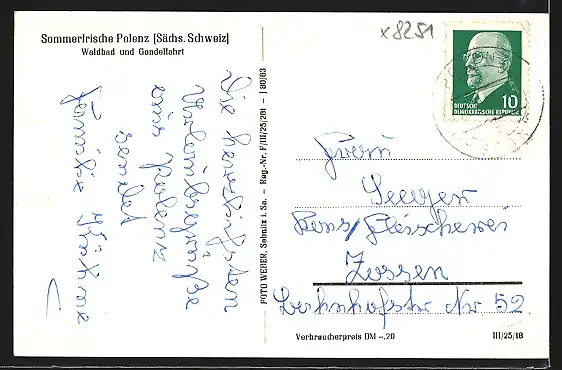 x8251
Sommerfrische Polenz [Sächs. Schweiz]
Waldbad und Gondelfahrt
Die herzlichsten
Urlaubsgrüße
aus Polenz
sendet
Familie
FOTO WEBER, Sebnitz i. Sa. - Reg.-Nr. F/III/25/201 - J 80/63
DEUTSCHE
DEMOKRATISCHE REPUBLIK
10
Frau
Seeger
Kons/Fleischerei
Zossen
Bahnhofstr. Nr 52.
Verbraucherpreis DM -,20
III/25/18